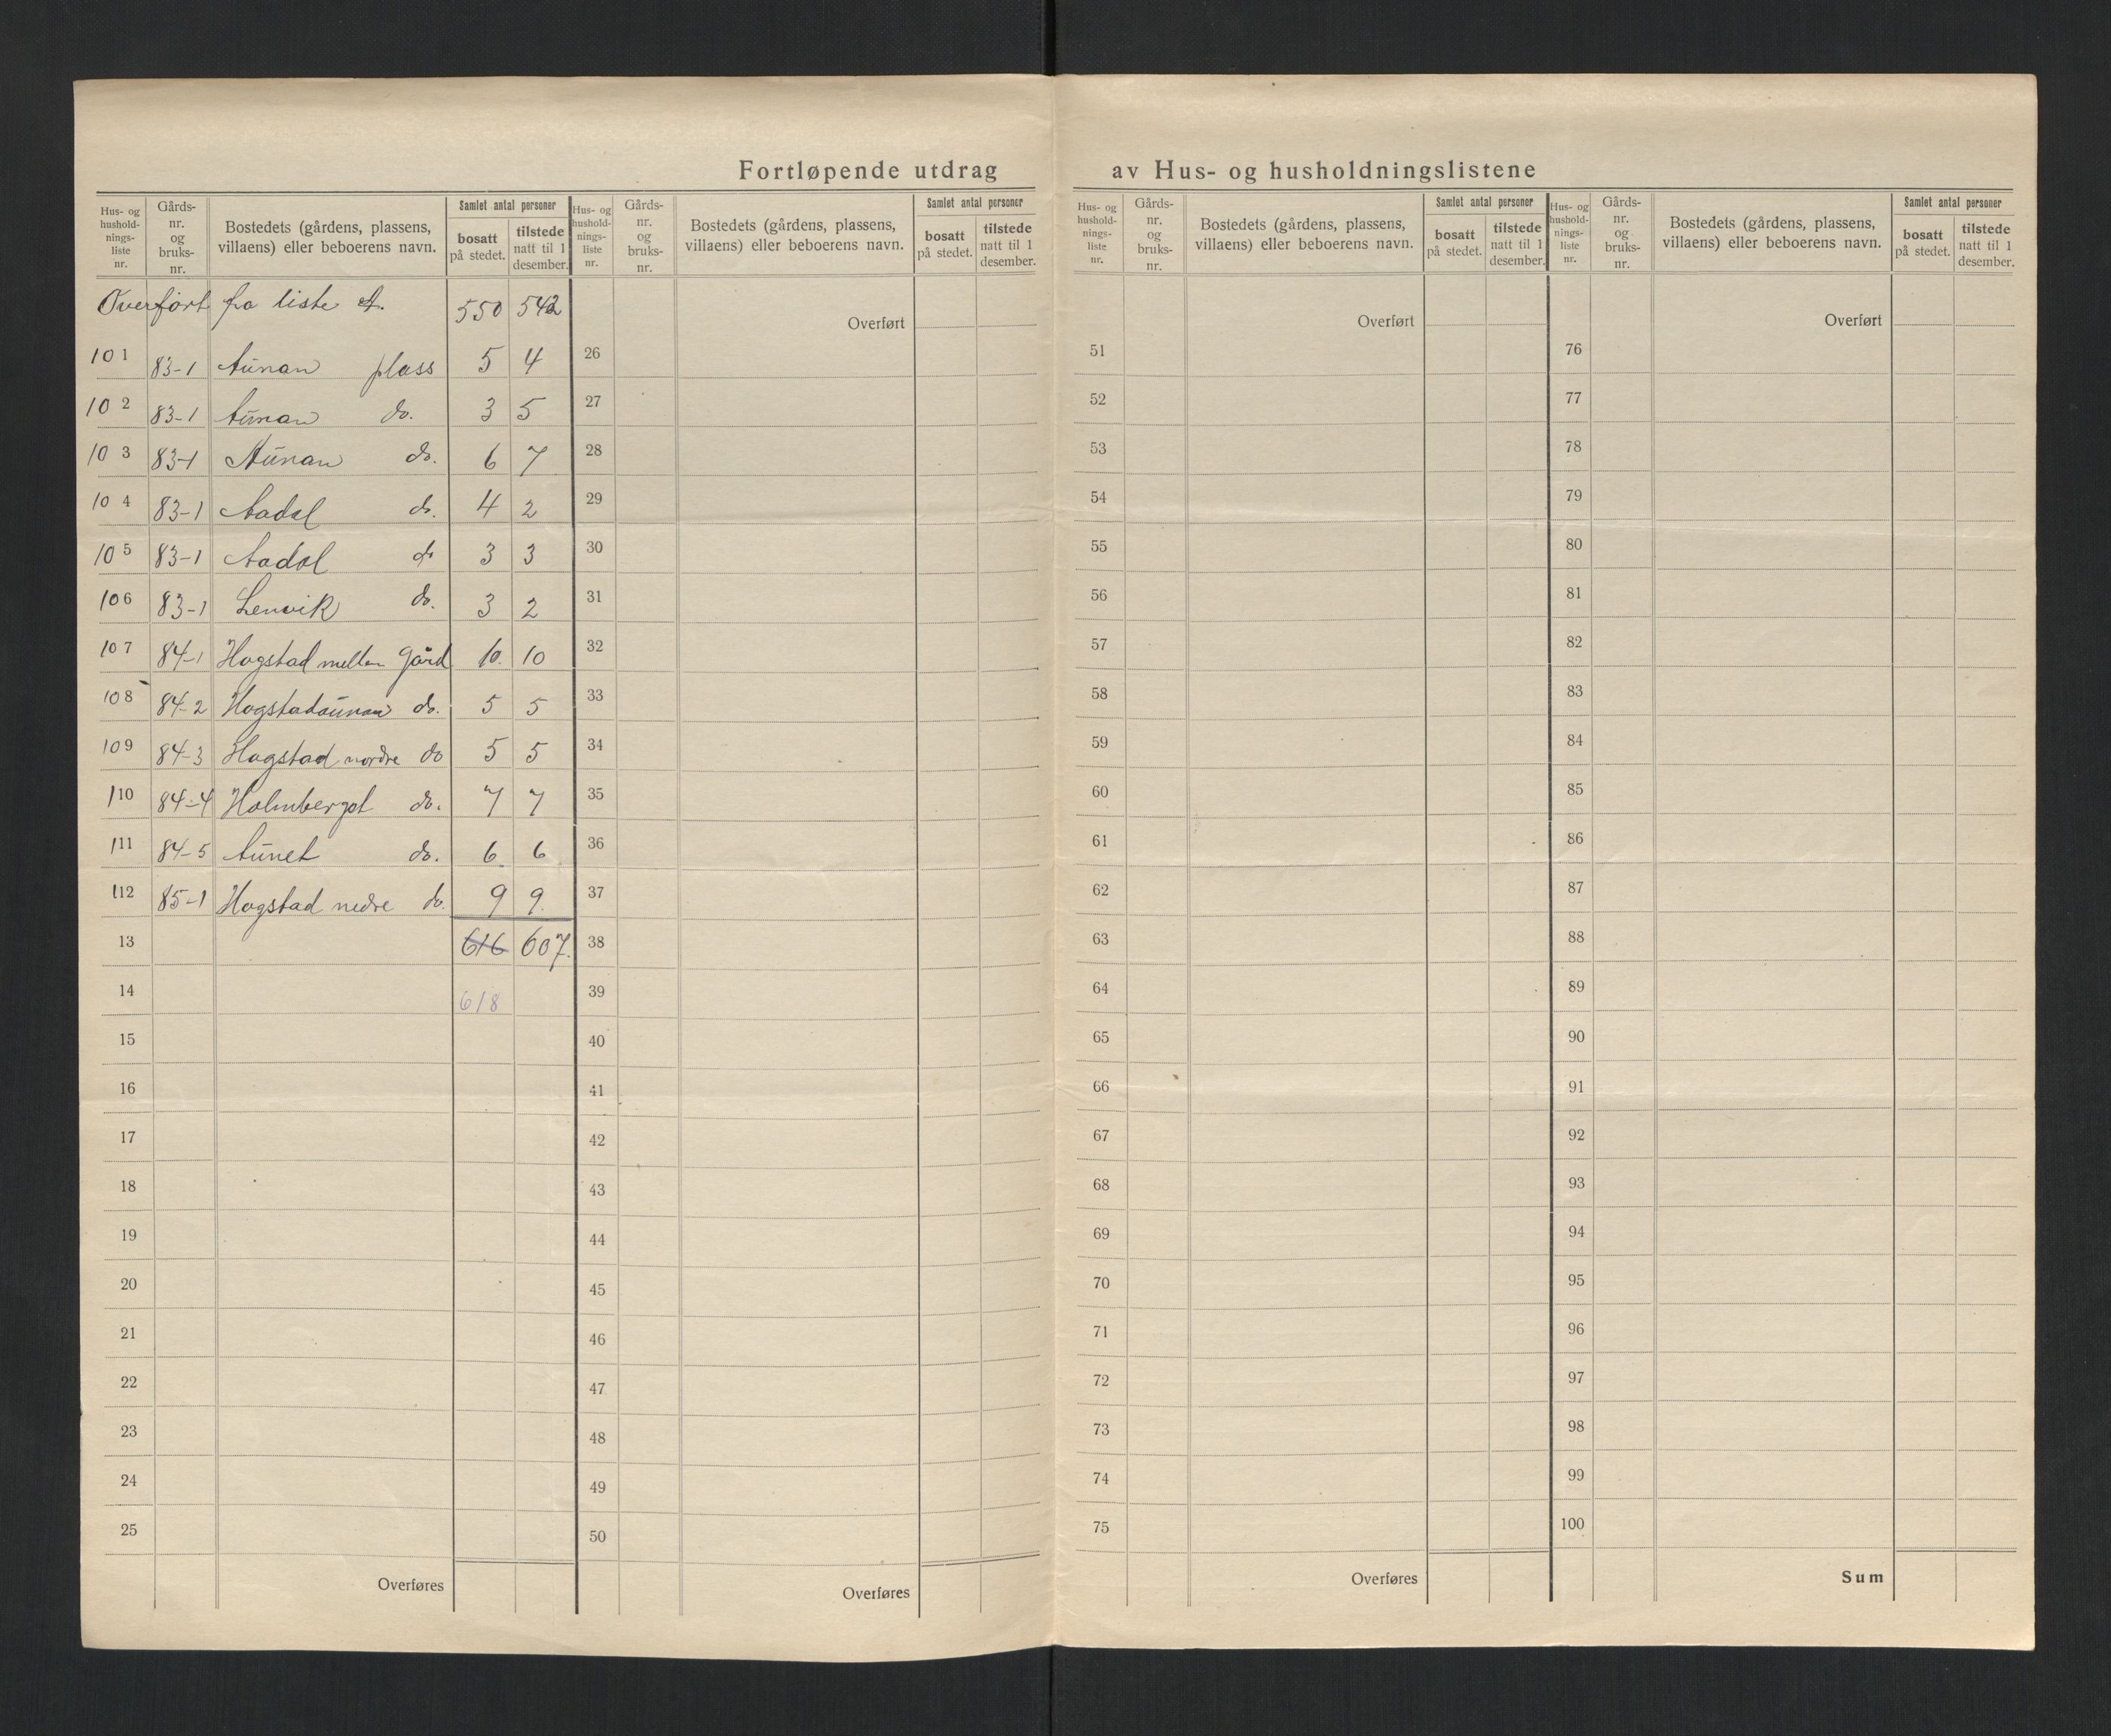 Fortløpende utdrag av Hus- og husholdningslistene
Hus- og hushold-nings-liste nr. Gårds-nr. og bruks-nr. Bostedets (gårdens, plassens, villaens) eller beboerens navn. Samlet antal personer bosatt på stedet. tilstede natt til 1 desember.
Overført fra liste 550 542
101 83-1 Aunan plass 5 4
102 83-1 Aunan do. 3 5
103 83-1 Aunan do. 6 7
104 83-1 Aadal do. 4 2
105 83-1 Aadal do 3 3
106 83-1 Lenvik do. 3 2
107 84-1 Hogstad mellan Gård 10. 10
108 84-2 Hogstadaunan do. 5 5
109 84-3 Hogstad nordre do 5 5
110 84-4 Holmberget do. 7 7
111 84-5 Aunet do. 6. 6
112 85-1 Hogstad nedre do. 9 9.
13 616 607.
14 618
15
16
17
18
19
20
21
22
23
24
25
Overføres
Hus- og hushold-nings-liste nr. Gårds-nr. og bruks-nr. Bostedets (gårdens, plassens, villaens) eller beboerens navn. Samlet antal personer bosatt på stedet. tilstede natt til 1 desember.
Overført
26
27
28
29
30
31
32
33
34
35
36
37
38
39
40
41
42
43
44
45
46
47
48
49
50
Overføres
Hus- og hushold-nings-liste nr. Gårds-nr. og bruks-nr. Bostedets (gårdens, plassens, villaens) eller beboerens navn. Samlet antal personer bosatt på stedet. tilstede natt til 1 desember.
Overført
51
52
53
54
55
56
57
58
59
60
61
62
63
64
65
66
67
68
69
70
71
72
73
74
75
Overføres
Hus- og hushold-nings-liste nr. Gårds-nr. og bruks-nr. Bostedets (gårdens, plassens, villaens) eller beboerens navn. Samlet antal personer bosatt på stedet. tilstede natt til 1 desember.
Overført
76
77
78
79
80
81
82
83
84
85
86
87
88
89
90
91
92
93
94
95
96
97
98
99
100
Sum